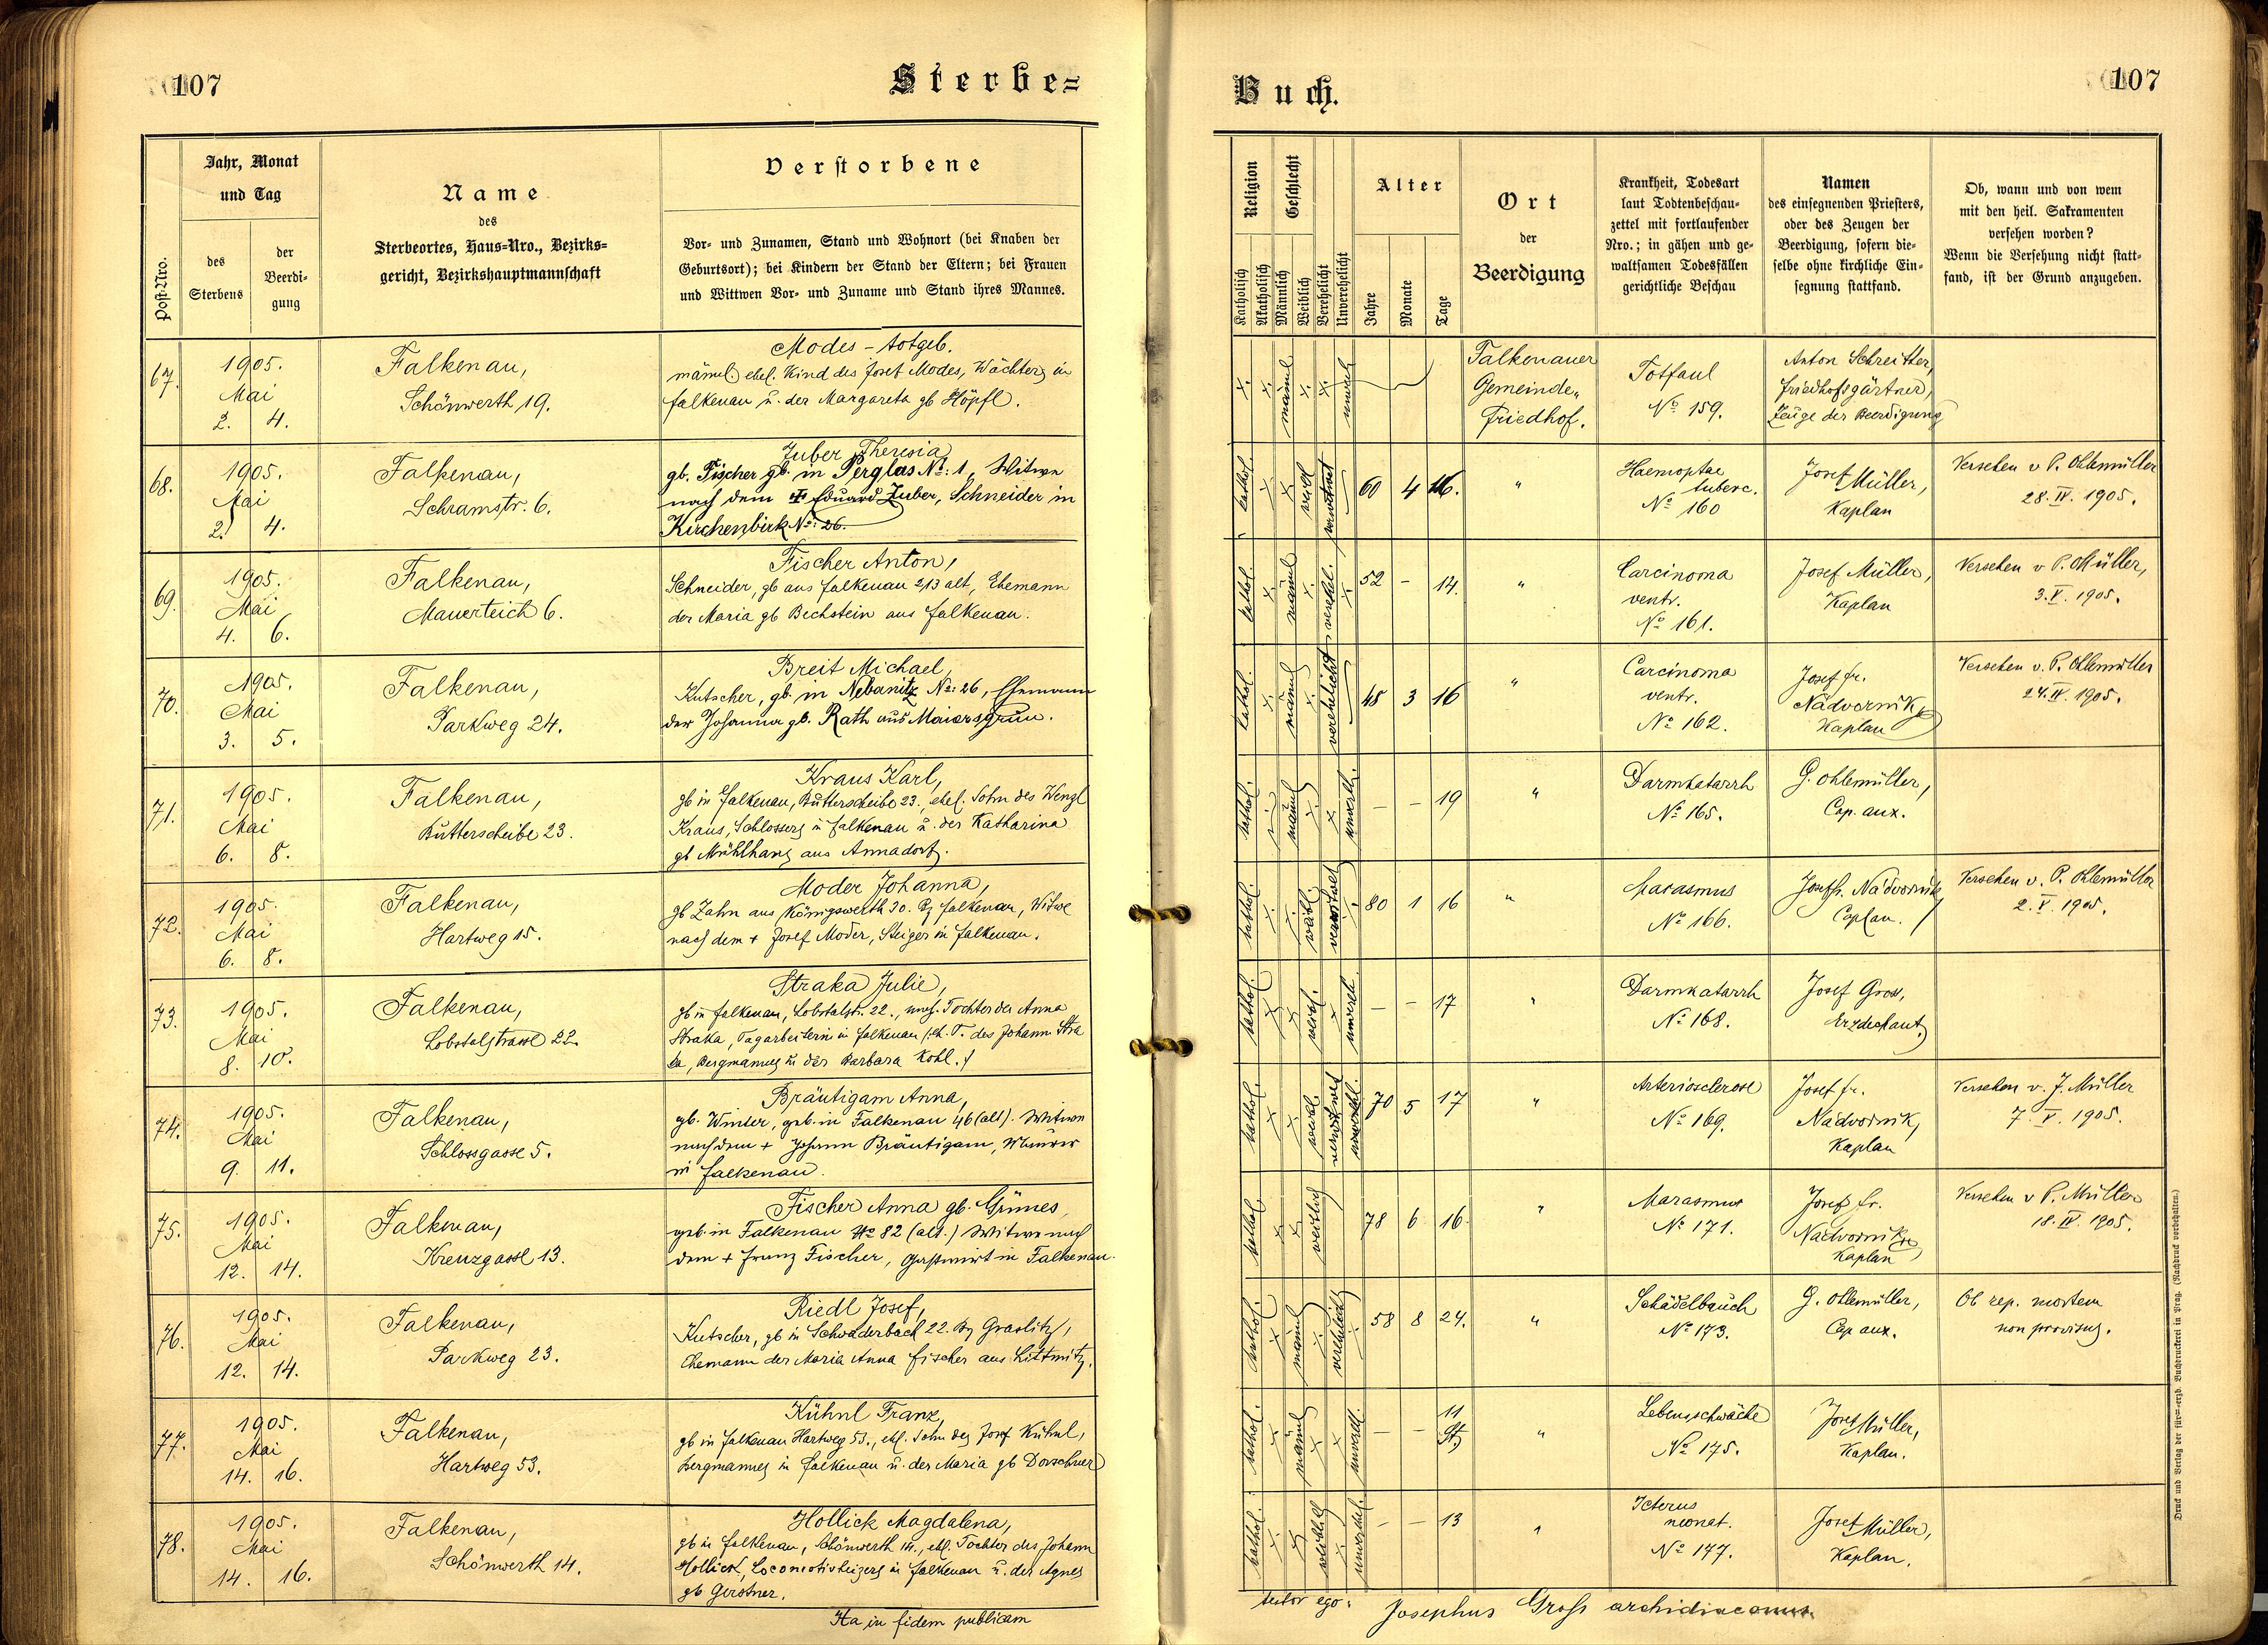 107
Sterbe=
Jahr, Monat
und Tag
Post-Nro.
des
Sterbens
der
Beerdi-
gung
Name
des
Sterbeortes, Haus-Nro., Bezirks=
gericht, Bezirkshauptmannschaft
Verstorbene
Vor- und Zunamen, Stand und Wohnort (bei Knaben der
Geburtsort); bei Kindern der Stand der Eltern; bei Frauen
und Wittwen Vor- und Zuname und Stand ihres Mannes.
67.
1905.
Mai
2. 4.
Falkenau,
Schönwerth 19.
Modes - totgeb.
männl. ehel. Kind des Josef Modes, Wächters in
Falkenau u. der Margareta gb Höpfl.
68.
1905.
Mai
2. 4.
Falkenau,
Schramstr. 6.
Zuber Theresia
gb. Fischer gb. in Perglas No: 1, Witwe
nach dem Eduard Zuber, Schneider in
Kirchenbirk No: 26.
69.
1905.
Mai
4. 6.
Falkenau,
Mauerteich 6.
Fischer Anton,
Schneider, gb aus Falkenau 213 alt, Ehemann
der Maria gb Bechstein aus Falkenau.
70.
1905.
Mai
3. 5.
Falkenau,
Parkweg 24.
Breit Michael,
Kutscher, gb. in Nebanitz No: 26, Ehemann
der Johanna gb. Rath aus Maiersgrün.
71.
1905.
Mai
6. 8.
Falkenau,
Butterscheibe 23.
Kraus Karl,
gb in Falkenau, Butterscheibe 23., ehel. Sohn des Wenzl
Kraus, Schlossers in Falkenau u. der Katharina
gb Mühlhans aus Annadorf.
72.
1905.
Mai
6. 8.
Falkenau,
Hartweg 15.
Moder Johanna,
gb Zahn aus Königswerth 30. Bz Falkenau, Witwe
nach dem + Josef Moder, Steiger in Falkenau.
73.
1905.
Mai
8. 10.
Falkenau,
Lobstalstrasse 22.
Straka Julie,
gb in Falkenau, Lobstalstr. 22., uneh. Tochter der Anna
Straka, Tagarbeiterin in Falkenau (eh. T. des Johann Stra
ka, Bergmannes u der Barbara Kohl.)
74.
1905.
Mai
9. 11.
Falkenau,
Schlossgasse 5.
Bräutigam Anna,
gb. Winter, geb. in Falkenau 46 (alt). Witwe
nach dem + Johann Bräutigam, Maurer
in Falkenau.
75.
1905.
Mai
12. 14.
Falkenau,
Kreuzgasse 13.
Fischer Anna gb. Grünes
geb. in Falkenau No 82 (alt.) Witwe nach
dem + Franz Fischer, Gastwirt in Falkenau.
76.
1905.
Mai
12. 14.
Falkenau,
Parkweg 23.
Riedl Josef,
Kutscher, gb in Schwaderbach 22. Bz Graslitz,
Ehemann der Maria Anna Fischer aus Littmitz.
77.
1905.
Mai
14. 16.
Falkenau,
Hartweg 53.
Kühnl Franz,
gb in Falkenau Hartweg 53., ehl. Sohn des Josef Kühnl,
Bergmannes in Falkenau u. der Maria gb Dorschner
78.
1905.
Mai
14. 16.
Falkenau,
Schönwerth 14.
Hollick Magdalena,
gb in Falkenau, Schönwerth 14., ehl. Tochter des Johann
Hollick, Locomotivheizers in Falkenau u. der Agnes
gb Gerstner.
Ita in fidem publicam
Buch.
107
Religion
Katholisch
Akatholisch
Geschlecht
Männlich
Weiblich
Verehelicht
Unverehelicht
Alter
Jahre
Monate
Tage
Ort
der
Beerdigung
Krankheit, Todesart
laut Todtenbeschau-
zettel mit fortlaufender
Nro.; in gähen und ge-
waltsamen Todesfällen
gerichtliche Beschau
Namen
des einsegnenden Priesters,
oder des Zeugen der
Beerdigung, sofern die-
selbe ohne kirchliche Ein-
segnung stattfand.
Ob, wann und von wem
mit den heil. Sakramenten
versehen worden?
Wenn die Versehung nicht statt-
fand, ist der Grund anzugeben.
männl
Falkenauer
Gemeinde-
Friedhof.
Totfaul
No 159.
Anton Schreitter,
Friedhofsgärtner,
Zeuge der Beerdigung
kathol. weibl verwitwet 60 4 16. "
Haemoptae
tuberc.
No 160
Josef Müller,
Kaplan
Versehen v P. Ohlemüller
28. IV. 1905.
kathol. männl verehel. 52 - 14. "
Carcinoma
ventr.
No 161.
Josef Müller,
Kaplan
Versehen v P. Müller,
3. V. 1905.
kathol. männl verehelicht 48 3 16 "
Carcinoma
ventr.
No 162.
Josef fr.
Nádvorník,
Kaplan
Versehen v. P. Ohlemüller
24. IV. 1905.
kathol. männl unverehl. - - 19 "
Darmkatarrh
No 165.
G. Ohlemüller,
Cap. aux.
kathol. weibl. verwitwet 80 1 16 "
Marasmus
No 166.
Josef fr. Nádvorník,
Caplan.
Versehen v. P. Ohlemüller
2. V. 1905.
kathol. weibl. unvereh. - - 17 "
Darmkatarrh
No 168.
Josef Gross,
Erzdechant
kathol. weibl. verwitwet 70 5 17 "
Arteriosclerose
No 169.
Josef fr.
Nádvorník,
Kaplan
Versehen v. J. Müller
7. V. 1905.
kathol. weiblich 78 6 16 "
Marasmus
No 171.
Josef fr.
Nádvorník,
Kaplan
Versehen v P. Müller
18. IV. 1905.
kathol. männl verehelicht 58 8 24. "
Schädelbruch
No 173.
G. Ohlemüller,
Cap aux.
Ob rep. mortem
non provisus.
kathol. männl unverehl. - - 11 St. "
Lebensschwäche
No 175.
Josef Müller,
Kaplan.
kathol. weiblich unverehel. - - 13 "
Icterus
neonat.
No 177.
Josef Müller,
Kaplan.
testor ego: Josephus Gross archidiaconus.
Druck und Verlag der fürst-erzb. Buchdruckerei in Prag. (Nachdruck vorbehalten.)